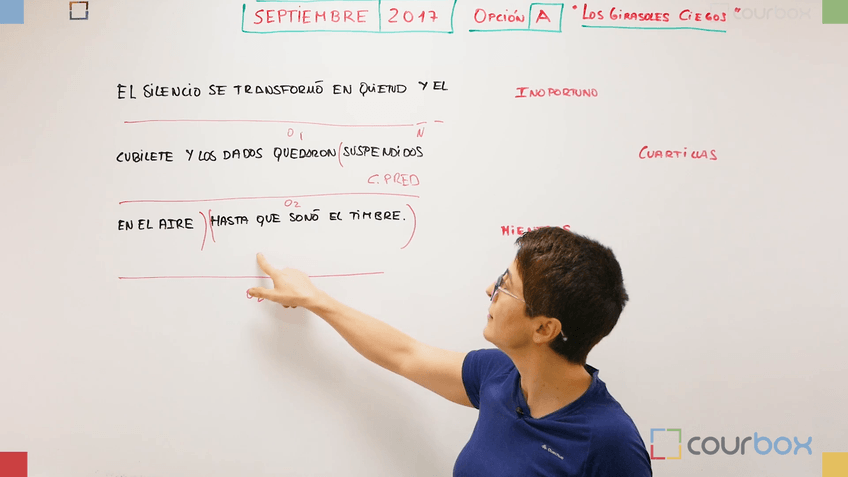 SEPTIEMBRE 2017 OPCIÓN A "LOS GIRASOLES CIEGOS"
courbox
EL SILENCIO SE TRANSFORMÓ EN QUIETUD Y EL
INOPORTUNO
O1 N
CUBILETE Y LOS DADOS QUEDARON (SUSPENDIDOS
CUARTILLAS
C. PRED
O2
EN EL AIRE) (HASTA QUE SONÓ EL TIMBRE.)
courbox